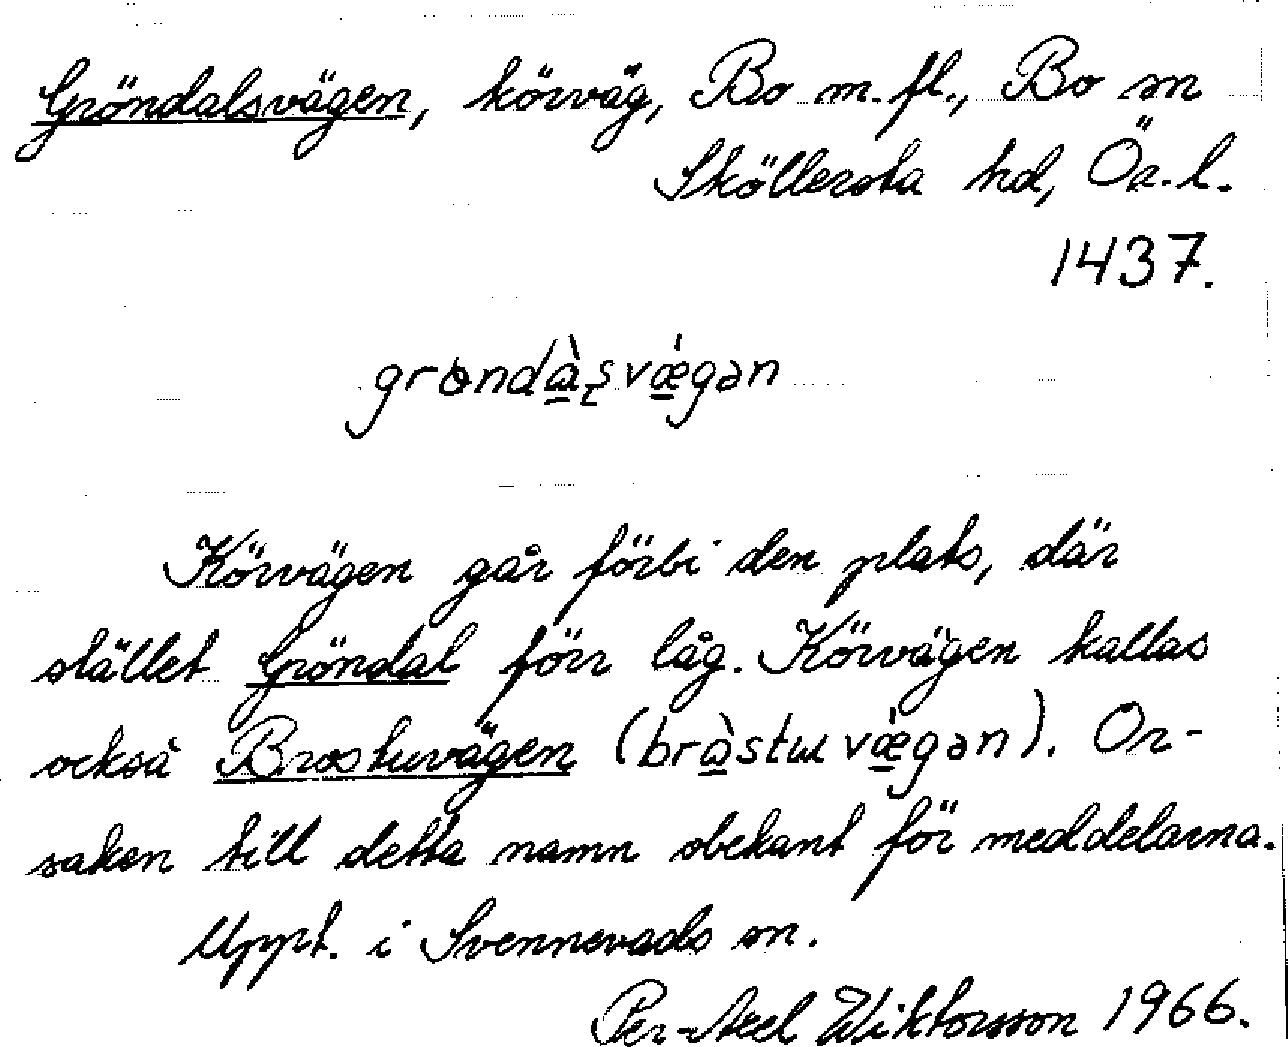 Gröndalsvägen, körväg, Bo m. fl., Bo sn
Sköllersta hd, Ör. l.
1437.
grøndàʂvǽgən
Körvägen går förbi den plats, där
stället Gröndal förr låg. Körvägen kallas
också Brostuvägen (bràstɯvǽgən). Or-
saken till detta namn obekant för meddelarna.
Uppt. i Svennevads sn.
Per-Axel Wiktorsson 1966.